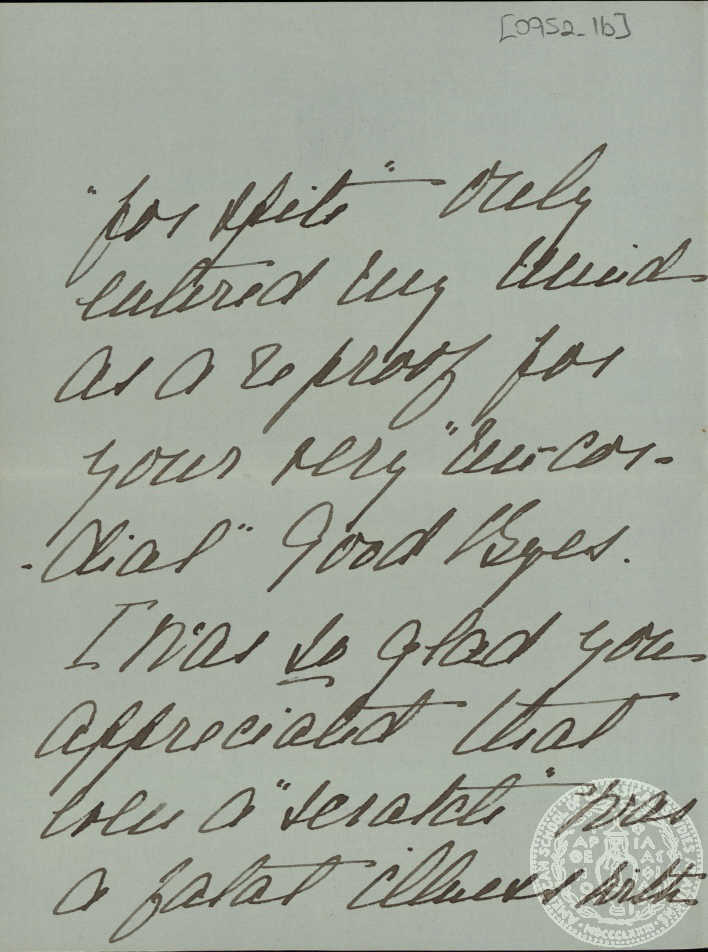 [0952_1b]
"for spite" only
entered my mind
as a reproof for
your very "un-cor-
-dial" Good Byes.
I was so glad you
appreciated that
even a "scratch" was
a fatal illness with